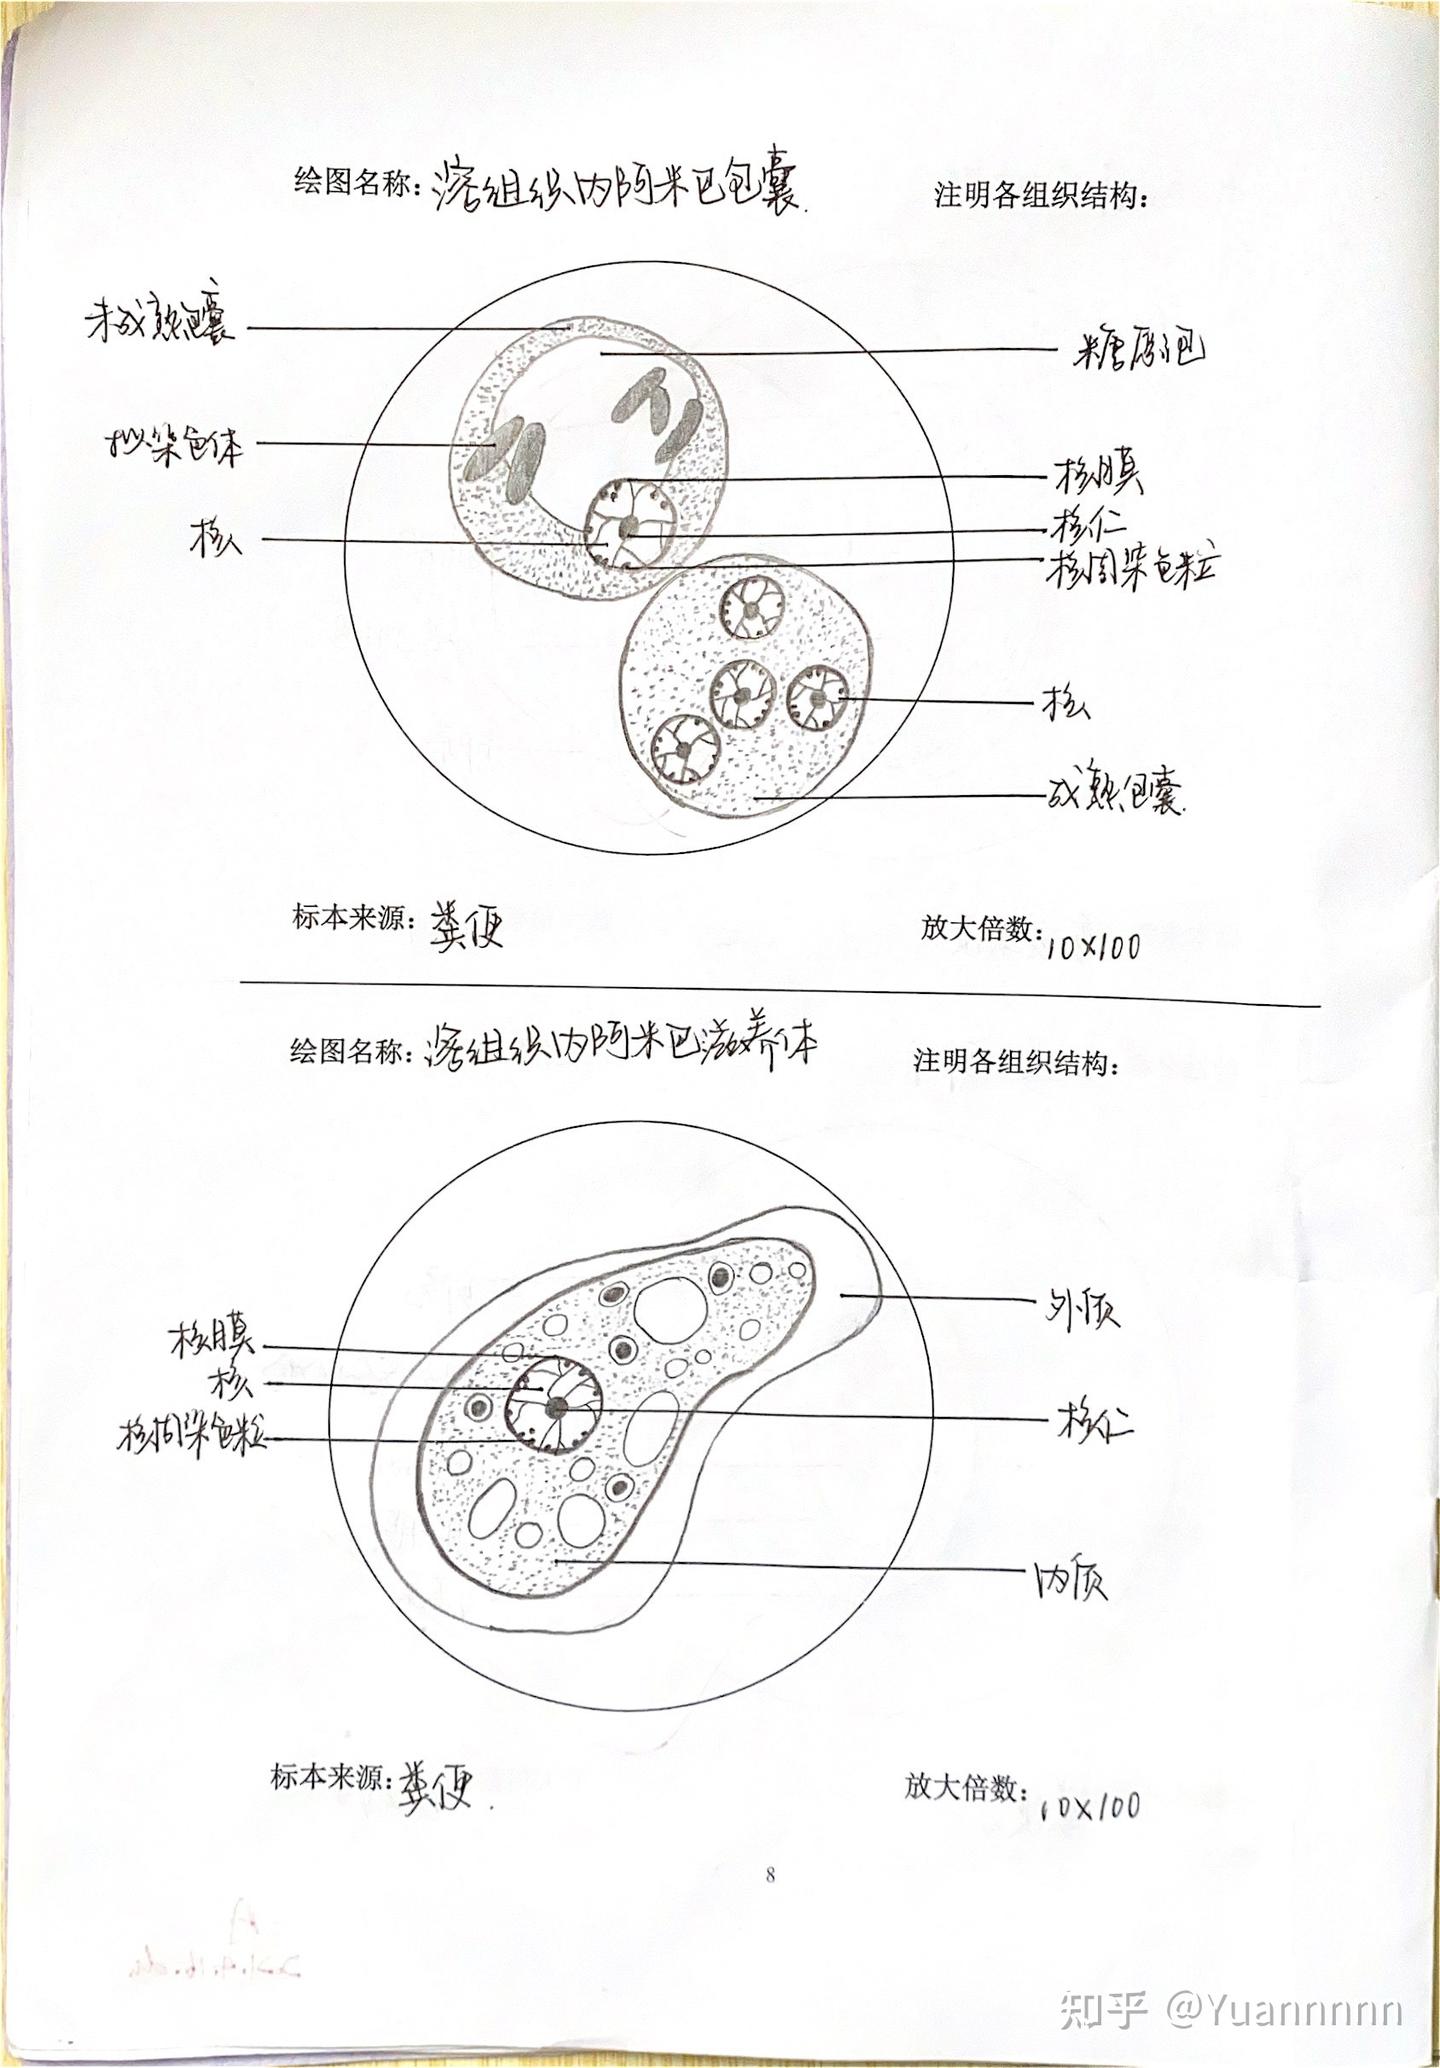 绘图名称：溶组织内阿米巴包囊.
注明各组织结构：
未成熟包囊
糖原泡
拟染色体
核膜
核仁
核
核周染色粒
核
成熟包囊.
标本来源：粪便
放大倍数：10×100
绘图名称：溶组织内阿米巴滋养体
注明各组织结构：
外质
核膜
核
核仁
核周染色粒
内质
标本来源：粪便.
放大倍数：10×100
8
知乎 @Yuannnnn